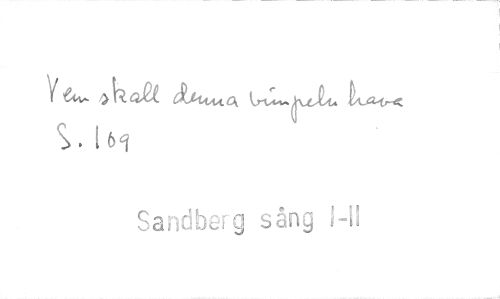 Vem skall denna vimpeln hava
S. 109
Sandberg sång I-II